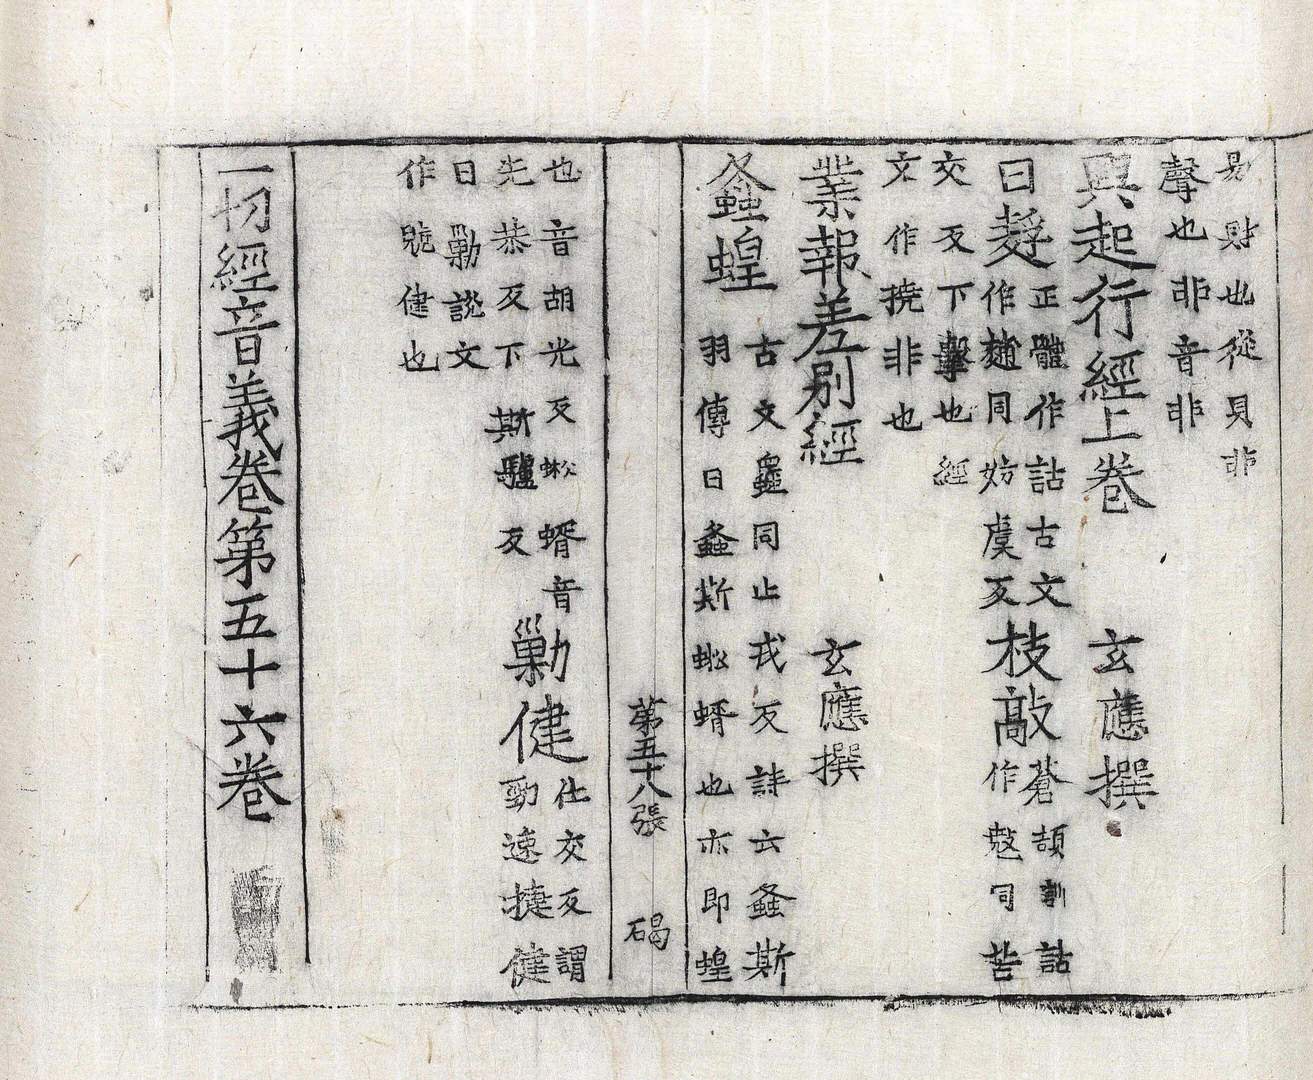 易財也從貝非
聲也非音非
興起行經上卷 玄應撰
曰㪍正體作詰古文
作𧼒同妨虞反枝敲蒼頡訓詁
作㪣同苦
交反下擊也經
文作撓非也
業報差別經 玄應撰
螽蝗古文𧑄同止戎反詩云螽斯
羽傳曰螽斯蚣蝑也亦即蝗
第五十八張 碣
也音胡光反蚣蝑音
先恭反下斯驢反勦健仕交反謂
勁速捷健
曰勦說文
作䟫健也
一切經音義卷第五十六卷